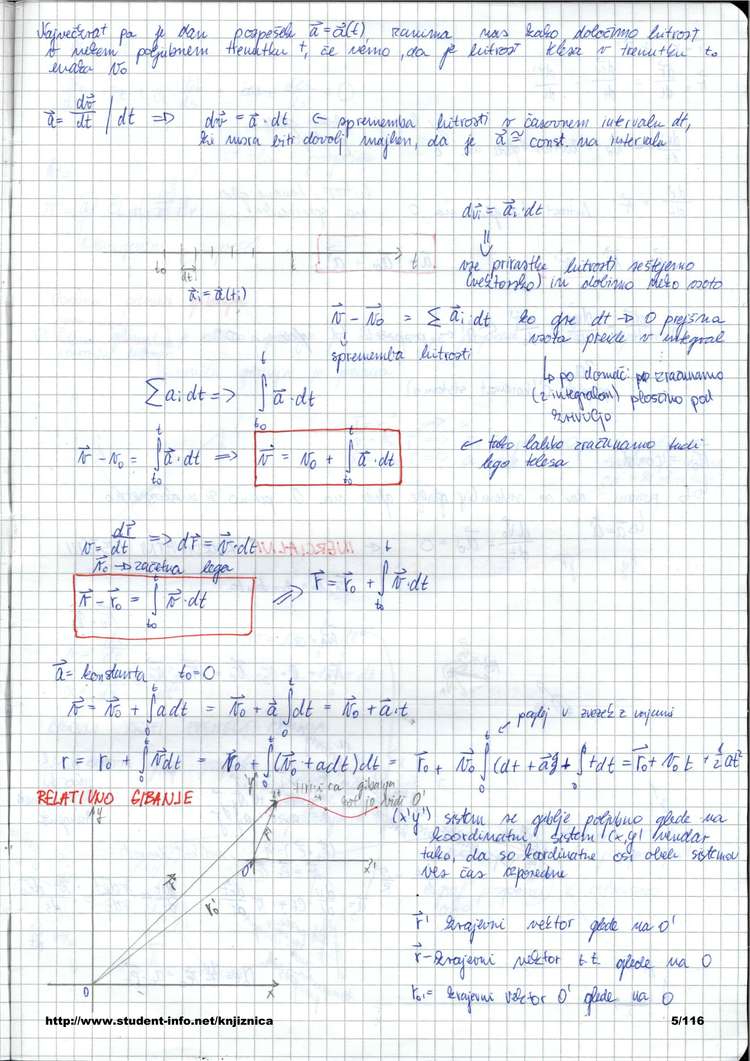 Največkrat pa je dan pospešek a⃗ = a⃗(t), zanima nas kako določimo hitrost
v nekem poljubnem trenutku t, če vemo, da je hitrost telesa v trenutku t₀
enaka v₀
a⃗ = dv⃗/dt / dt => dv⃗ = a⃗ · dt ← sprememba hitrosti v časovnem intervalu dt,
ki mora biti dovolj majhen, da je a⃗ ≅ const. na intervalu
dv⃗ᵢ = a⃗ᵢ · dt
⇓
t₀ dt t t
a⃗ᵢ = a⃗(tᵢ)
vse prirastke hitrosti seštejemo
(vektorsko) in dobimo neko vsoto
v⃗ - v⃗₀ = ∑ a⃗ᵢ dt ko gre dt → 0 prejšnja
vsota preide v integral
↓ sprememba hitrosti
↳ po domače: izračunamo
(z integralom) ploščino pod
krivuljo
∑ aᵢ dt => ∫ₜ₀ᵗ a⃗ · dt
v⃗ - v₀ = ∫ₜ₀ᵗ a⃗ · dt => v⃗ = v₀ + ∫ₜ₀ᵗ a⃗ · dt
← tako lahko izračunamo tudi
lego telesa
v = dr⃗/dt => dr⃗ = v⃗ · dt
r⃗₀ → začetna lega
r⃗ - r⃗₀ = ∫ₜ₀ᵗ v⃗ · dt => r⃗ = r⃗₀ + ∫ₜ₀ᵗ v⃗ · dt
a⃗ = konstanta t₀ = 0
v⃗ = v⃗₀ + ∫₀ᵗ a dt = v⃗₀ + a⃗ ∫₀ᵗ dt = v⃗₀ + a⃗ · t
← poglej v zvezek z vajami
r = r₀ + ∫₀ᵗ v⃗ dt = r₀ + ∫₀ᵗ (v⃗₀ + a dt) dt = r⃗₀ + v⃗₀ ∫₀ᵗ (dt + a⃗ ∫₀ᵗ t dt = r⃗₀ + v⃗₀ t + ½ at²
RELATIVNO GIBANJE
gibanja
kot jo vidi O'
y y' t.t. r⃗ r⃗' r₀' O' x' O x
(x'y') sistem se giblje poljubno glede na
koordinatni sistem (x,y) vendar
tako, da so koordinatne osi obeh sistemov
ves čas vzporedne
r⃗' krajevni vektor glede na O'
r⃗ - krajevni vektor t.t. glede na O
r₀' = krajevni vektor O' glede na O
http://www.student-info.net/knjiznica
5/116